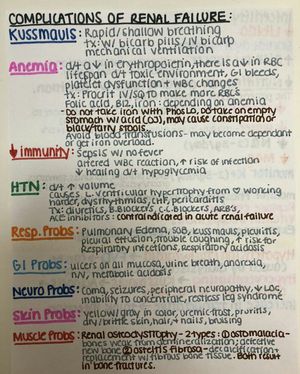 COMPLICATIONS OF RENAL FAILURE:
Kussmauls: Rapid/shallow breathing
Tx: W/ bicarb pills/IV bicarb
mechanical ventilation
Anemia: d/t a ↓ in erythropoietin, there is a ↓ in RBC
lifespan d/t toxic environment, GI bleeds,
platelet dysfunction + WBC changes
Tx: Procrit IV/SQ to make more RBC's
Folic acid, B12, iron: depending on anemia
Do not take iron with PhosLo, do take on empty
stomach w/ acid (OJ), may cause constipation or
black/tarry stools
Avoid blood transfusions- may become dependant
or get iron overload.
↓ immunity: Sepsis w/ no fever
altered WBC reaction, ↑ risk of infection
↓ healing d/t hypoglycemia
HTN: d/t ↑ volume
causes L. ventricular hypertrophy from ♡ working
harder, dysrhythmias, CHF, pericarditis
Tx: diuretics, B.Blockers, C.C Blockers, ARB's,
ACE inhibitors: contraindicated in acute renal failure
Resp. Probs: Pulmonary Edema, SOB, kussmauls, pleuritis,
pleural effusion, trouble coughing, ↑ risk for
respiratory infections, respiratory acidosis
GI Probs: ulcers on all mucosa, urine breath, anorexia,
N/V, metabolic acidosis
Neuro Probs: Coma, seizures, peripheral neuropathy, ↓ LOC,
inability to concentrate, restless leg syndrome
Skin Probs: yellow/gray in color, uremic frost, pruritis,
dry/brittle skin, hair, + nails, bruising
Muscle Probs: Renal osteodystrophy - 2 types: ① ostomalacia-
bones weak from demineralization; defective
new bone ② osteitis fibrosa- decalcification +
replacement w/ fibrous bone tissue. Both result
in bone fractures.